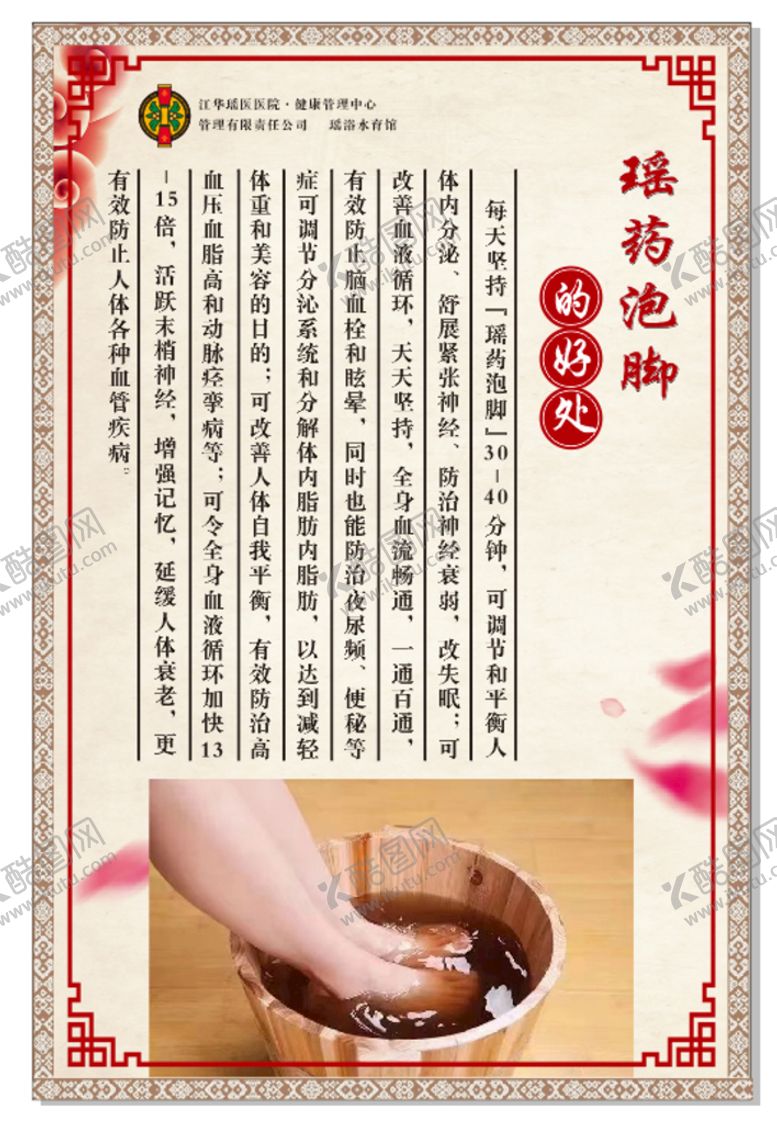 江华瑶医医院·健康管理中心
管理有限责任公司 瑶浴水育馆
瑶药泡脚
的好处
每天坚持「瑶药泡脚」30-40分钟，可调节和平衡人
体内分泌、舒展紧张神经、防治神经衰弱，改失眠；可
改善血液循环，天天坚持，全身血流畅通，一通百通，
有效防止脑血栓和眩晕，同时也能防治夜尿频、便秘等
症可调节分沁系统和分解体内脂肪内脂肪，以达到减轻
体重和美容的日的；可改善人体自我平衡，有效防治高
血压血脂高和动脉痉挛病等；可令全身血液循环加快13
-15倍，活跃末梢神经，增强记忆，延缓人体衰老，更
有效防止人体各种血管疾病。
酷图网
www.ikutu.com